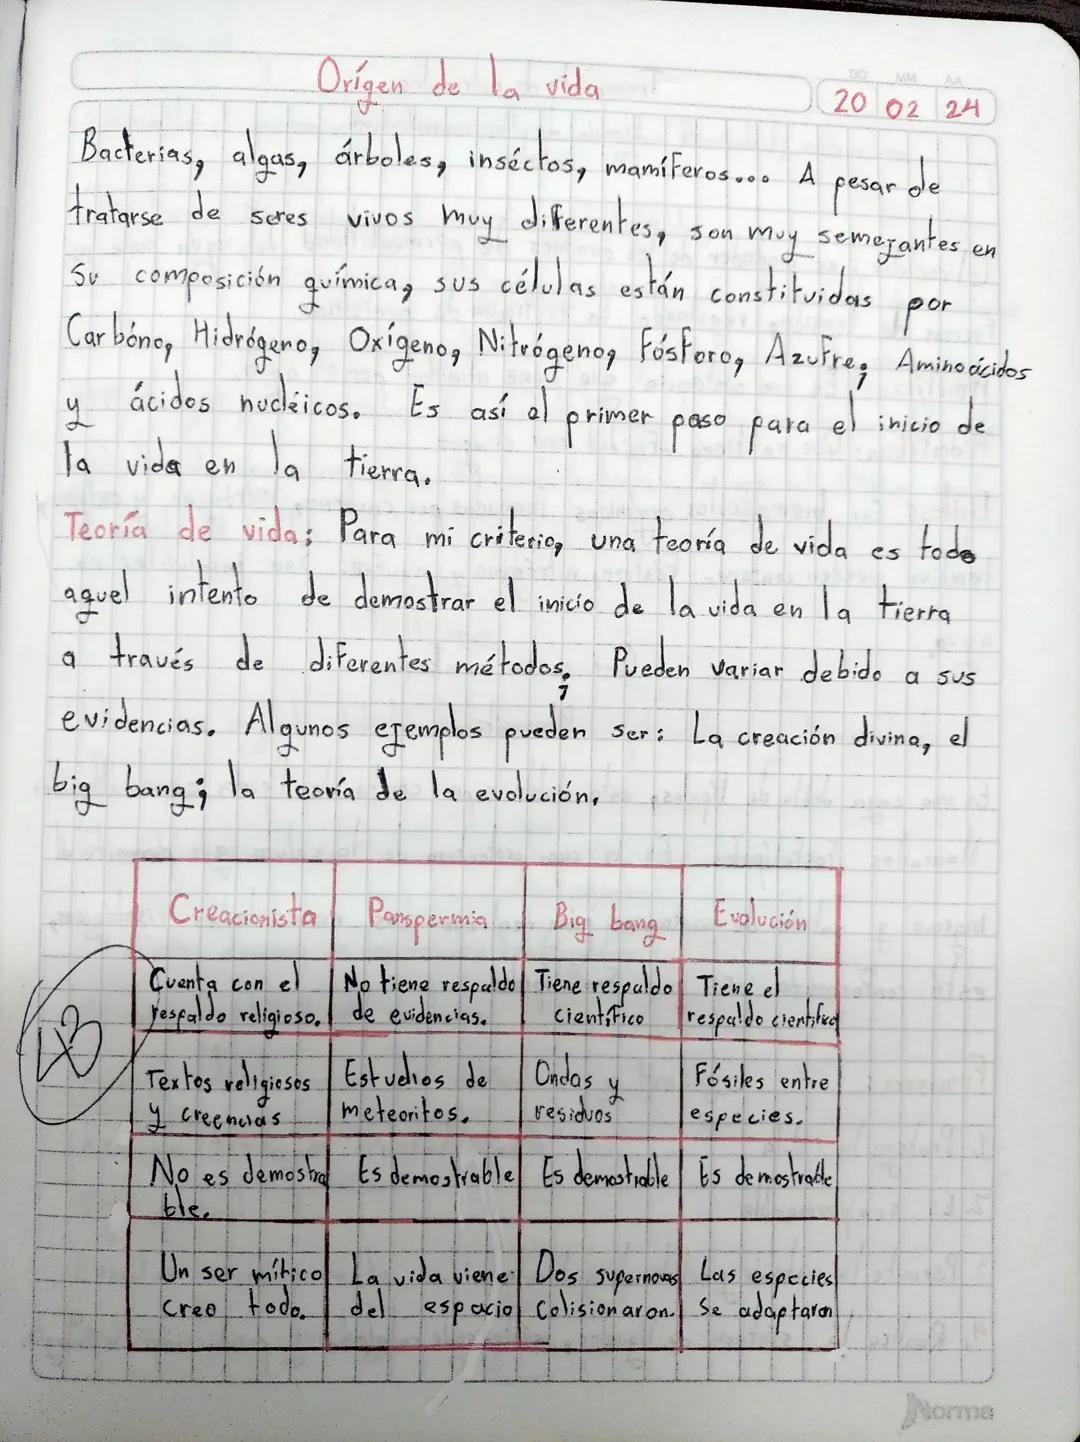 Orígen de la vida
DD MM AA
20 02 24
Bacterias, algas, árboles, inséctos, mamíferos... A pesar de
tratarse de seres vivos muy diferentes, son muy semejantes en
su composición química, sus células están constituidas por
Carbóno, Hidrógeno, Oxígeno, Nitrógeno, Fósforo, Azufre, Aminoácidos
y ácidos nucléicos. Es así el primer paso para el inicio de
la vida en la tierra.
Teoría de vida: Para mi criterio, una teoría de vida es todo
aquel intento de demostrar el inicio de la vida en la tierra
a través de diferentes métodos, Pueden variar debido a sus
evidencias. Algunos ejemplos pueden ser: La creación divina, el
big bang; la teoría de la evolución.
Creacionista Panspermia Big bang Evolución
Cuenta con el No tiene respaldo Tiene respaldo Tiene el
respaldo religioso. de evidencias. científico respaldo científico
Textos religiosos Estudios de Ondas y Fósiles entre
y creencias meteoritos. residuos especies.
No es demostra Es demostrable Es demostrable Es demostrable
ble.
Un ser mítico La vida viene Dos supernovas Las especies
creo todo. del espacio Colisionaron. Se adaptaron
Norma